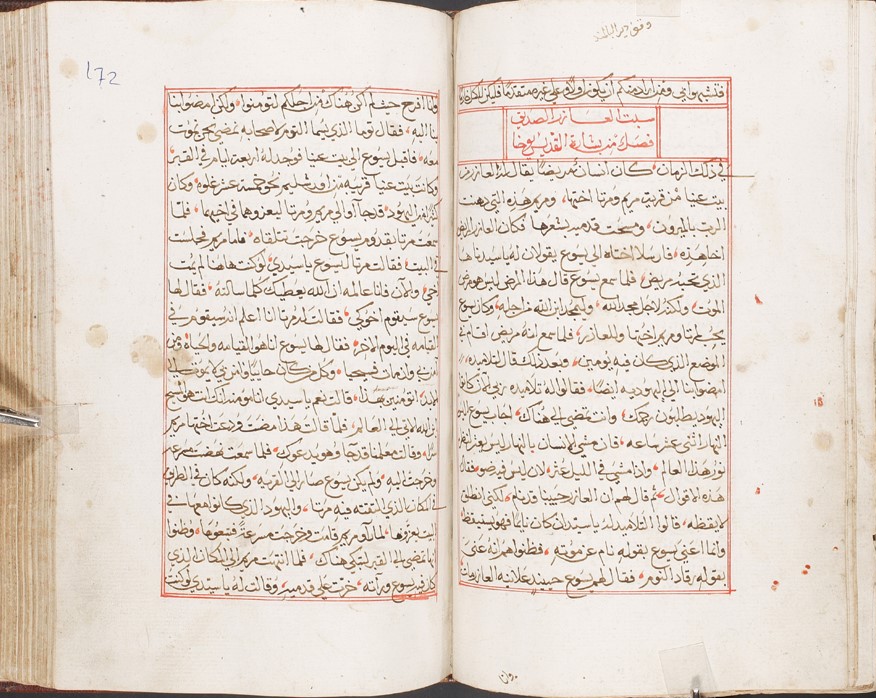 وقف دير البلمند
فتشبهوا بي ومن اراد منكم ان يكون اولا وعلي غيره متقدما فليكن للكل خادما
سبت العازر الصديق
فصل من بشارة القديس يوحنا
في ذلك الزمان كان انسان مريضا يقال له العازر من
بيت عنيا من قرية مريم ومرتا اختها ومريم هذه التي دهنت
الرب بالميرون ومسحت قدميه بشعرها فكان العازر المريض
اخا هذه فارسلا اختاه الى يسوع يقولان له يا سيد ها هوذا
الذي تحبه مريض فلما سمع يسوع قال هذا المرض ليس هو مرض
الموت ولكنه لاجل مجد الله وليمجد ابن الله من اجله وكان يسوع
يحب مرتا ومريم اختها والعازر فلما سمع انه مريض اقام في
الموضع الذي كان فيه يومين وبعد ذلك قال لتلاميذه
امضوا بنا الي اليهوديه ايضا فقالوا له تلاميذه ربي الان كانوا
اليهود يطلبون رجمك وانت تمضي الي هناك اجاب يسوع اليس
النهار اثني عشر ساعه فان مشي الانسان بالنهار ليس يعثر لانه ينظر
نور هذا العالم واذا مشي في الليل عثر لان ليس فيه ضو فقال
هذه الاقوال ثم قال لهم ان العازر حبيبنا قد نام لكني انطلق
لايقظه قالوا التلاميذ له يا سيد ان كان نايما فهو يستيقظ
وانما اعني يسوع بقوله نام عن موته فظنوا هم انه عني
بقوله رقاد النوم فقال لهم يسوع حينيذ علانيه العازر مات
172
وانا افرح حيث لم اكن هناك من اجلكم لتومنوا ولكن امضوا بنا
اليه فقال توما الذي يسما التوم لاصحابه نمضي نحن نموت
معه فاقبل يسوع الي بيت عنيا فوجد له اربعة ايام في القبر
وكانت بيت عنيا قريبه من اورشليم نحو خمسة عشر غلوه وكان
كثير من اليهود قد جاوا الي مريم ومرتا ليعزوهما في اخيهما فلما
سمعت مرتا بقدوم يسوع خرجت تتلقاه فاما مريم فجلست
في البيت فقالت مرتا ليسوع يا سيدي لو كنت هاهنا لم يمت
اخي والان فانا عالمه ان الله يعطيك كلما سالته فقال لها
يسوع سيقوم اخوكي فقالت له مرتا انا اعلم انه سيقوم في
القيامه في اليوم الاخر فقال لها يسوع انا هو القيامه والحياه ومن
امن بي وان مات فسيحيا وكل من كان حيا وامن بي لا يموت الي
الابد اتومنين بهذا قالت نعم يا سيدي انا اومن انك انت هو المسيح
ابن الله الاتي الي العالم فلما قالت هذا مضت فدعت اختها مريم
سرا وقالت معلمنا قد جا وهو يدعوك فلما سمعت نهضت مسرعه
وخرجت اليه ولم يكن يسوع صار الي القريه ولكنه كان في الطرق
في المكان الذي التقته فيه مرتا واليهود الذي كانوا معها في
البيت يعزوها لما راوا مريم قامت وخرجت مسرعة فتبعوها وظنوا
انها تمضي الي القبر لتبكي هناك فلما انتهت مريم الي المكان الذي
كان فيه يسوع وراته خرت علي قدميه وقالت له يا سيدي لو كنت